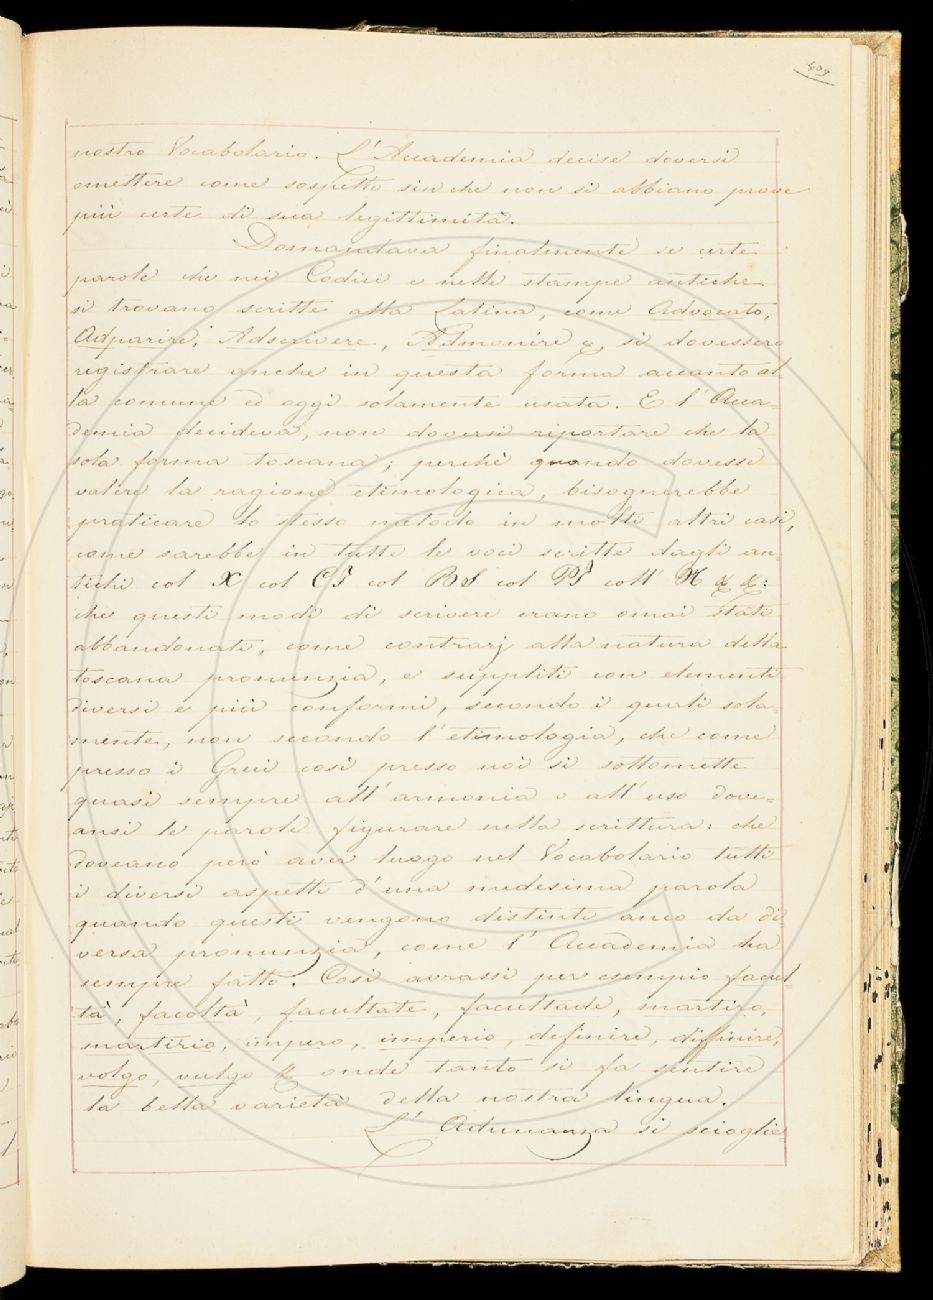 409
nostro Vocabolario. L'Accademia decise doversi
omettere come sospetto sin che non si abbiano prove
più certe di sua legittimità.
Domandava finalmente se certe
parole che nei Codici e nelle stampe antiche
si trovano scritte alla Latina, come Advocato,
Adparire, Adscrivere, Admonire &, si dovessero
registrare anche in questa forma accanto al-
la comune ed oggi solamente usata. E l'Acca-
demia decideva, non doversi riportare che la
sola forma toscana; perchè quando dovesse
valere la ragione etimologica, bisognerebbe
praticare lo stesso metodo in molti altri casi,
come sarebbe in tutte le voci scritte dagli an
tichi col X col CT col BS col PT coll' H & &:
che questi modi di scrivere erano omai stati
abbandonati, come contrarj alla natura della
toscana pronunzia, e suppliti con elementi
diversi e più conformi, secondo i quali sola-
mente, non secondo l'etimologia, che come
presso i Greci così presso noi si sottomette
quasi sempre all'armonia o all'uso dove-
ansi le parole figurare nella scrittura: che
doveano però aver luogo nel Vocabolario tutti
i diversi aspetti d'una medesima parola
quando questi vengono distinti anco da di
versa pronunzia, come l'Accademia ha
sempre fatto. Così avrassi per esempio facul
tà, facoltà, facultate, facultade, martiro,
martirio, impero, imperio, definire, diffinire,
volgo, vulgo & onde tanto si fa sentire
la bella varietà della nostra lingua.
L'Adunanza si scioglie